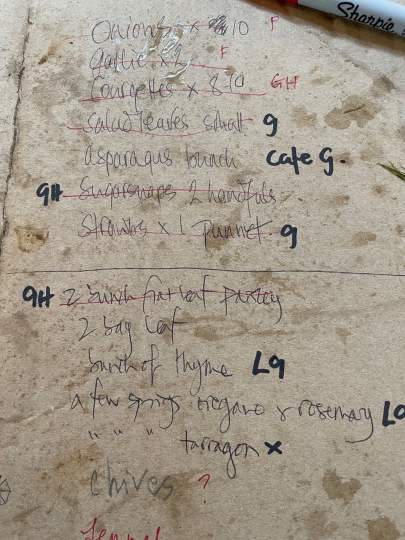 Sharpie
Onions x 10 F
garlic x 2 F
Courgettes x 8-10 GH
salad leaves small g
asparagus bunch cafe g.
GH Sugarsnaps 2 handfuls
Strawbs x 1 punnet. g
GH 2 bunch flat leaf parsley
2 bay leaf
bunch of thyme Lg
a few sprigs oregano & rosemary
" " " tarragon x
chives ?
fennel